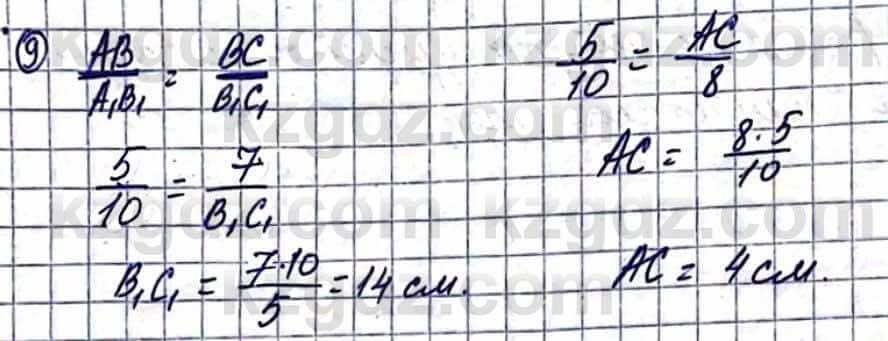 9 AB/A₁B₁ = BC/B₁C₁
5/10 = 7/B₁C₁
B₁C₁ = 7·10/5 = 14 см.
5/10 = AC/8
AC = 8·5/10
AC = 4 см.
kzgdz.com kzgdz.com
kzgdz.com
kzgdz.com kzgdz.com
kzgdz.com